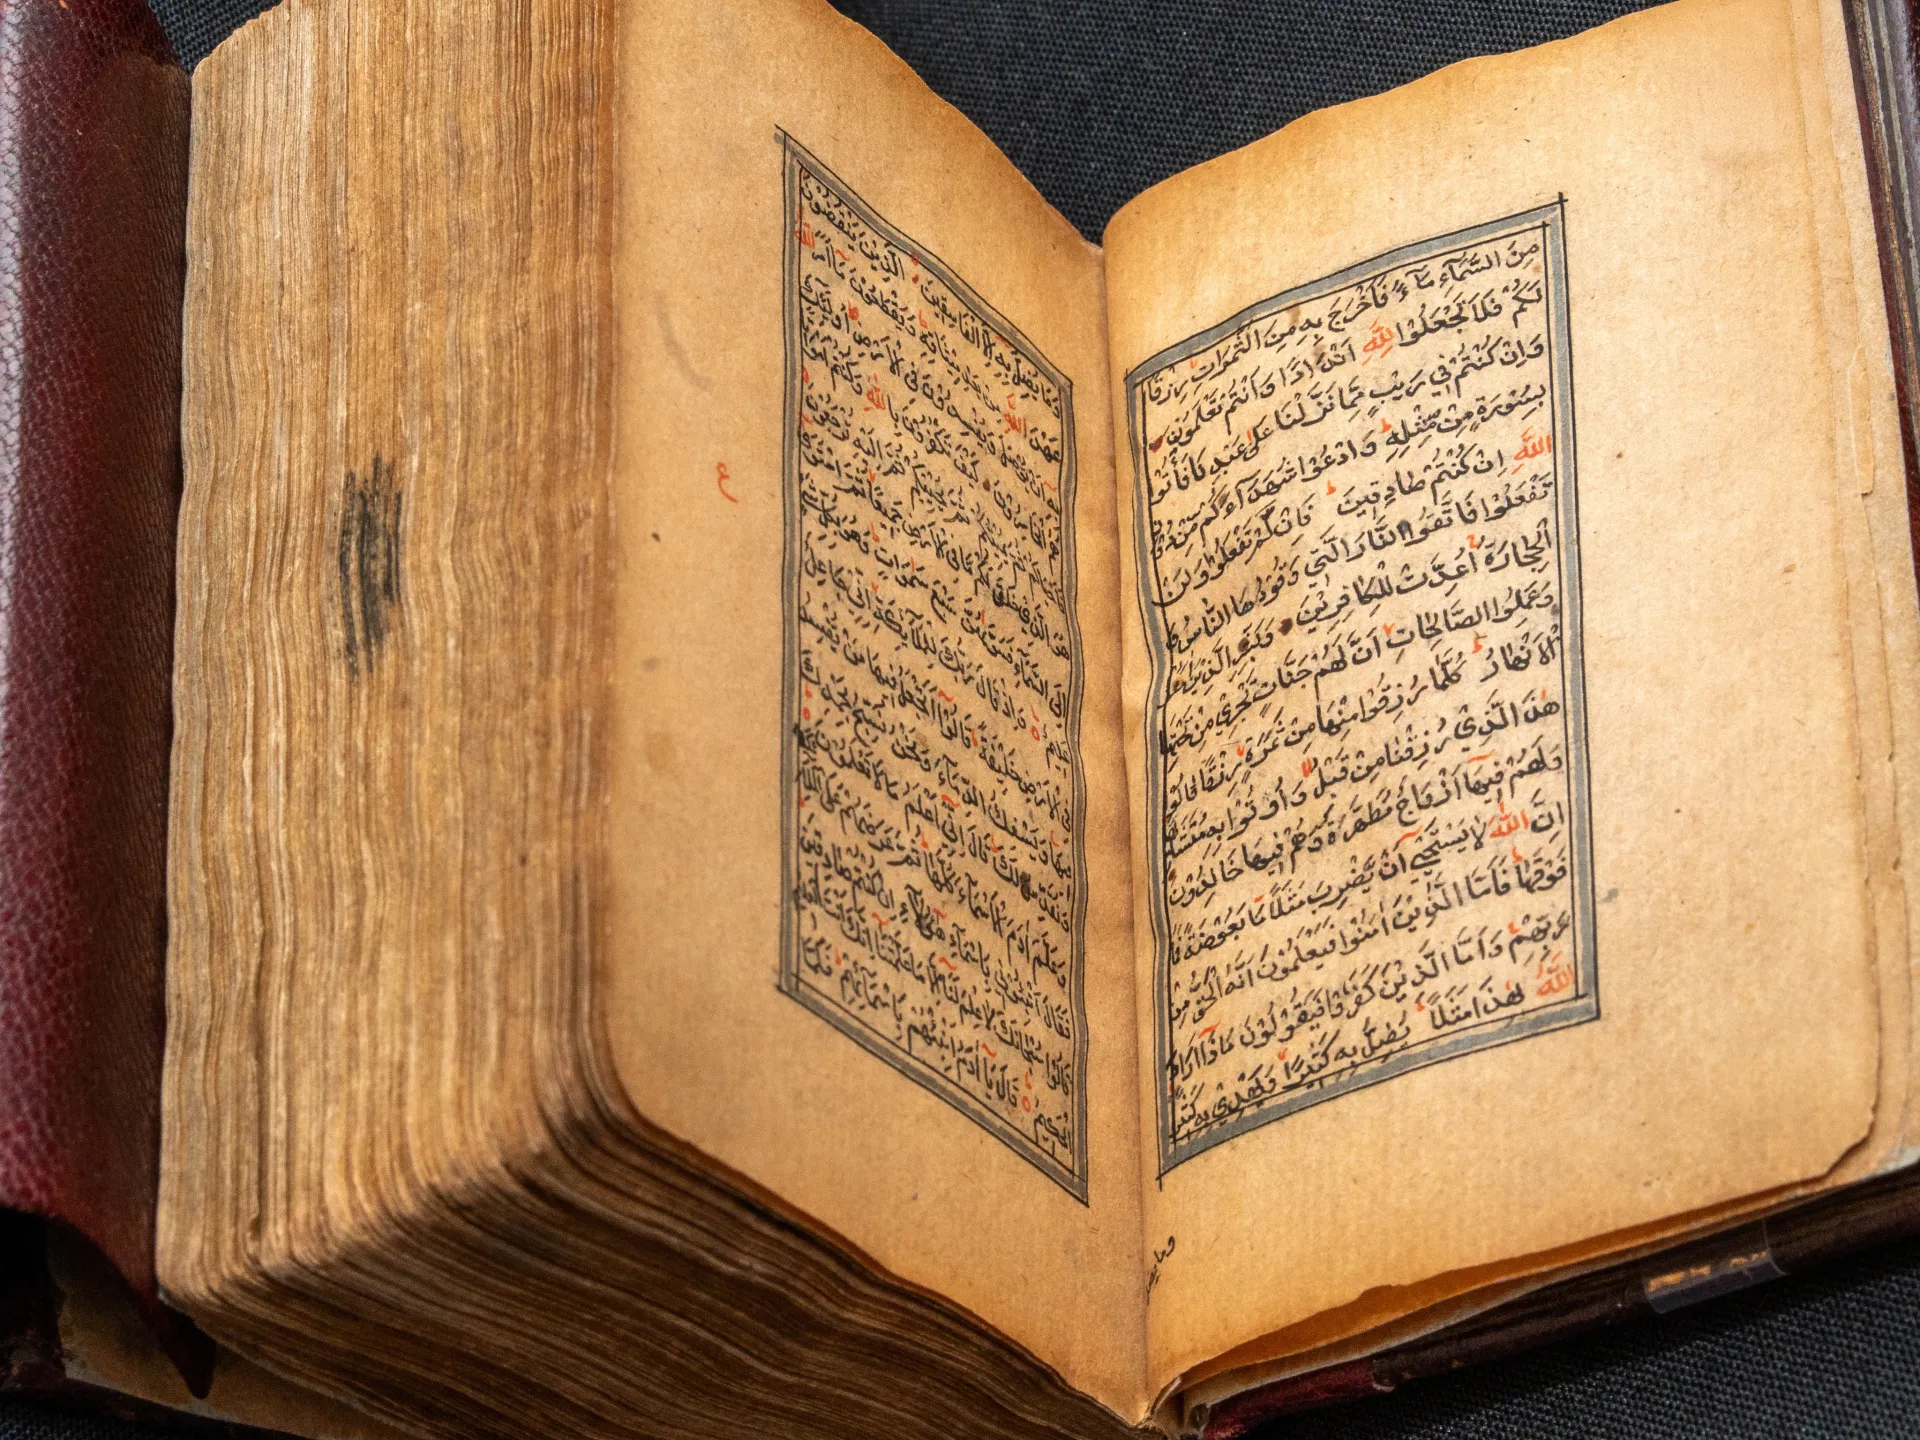 مِنَ السَّمَآءِ مَآءً فَاَخْرَجَ بِهِ مِنَ الثَّمَرَاتِ رِزْقًا
لَكُمْ فَلَا تَجْعَلُوْا لِلّٰهِ اَنْدَادًا وَاَنْتُمْ تَعْلَمُوْنَ
وَاِنْ كُنْتُمْ فِي رَيْبٍ مِمَّا نَزَّلْنَا عَلٰى عَبْدِنَا فَأْتُوْا
بِسُوْرَةٍ مِنْ مِثْلِهِ وَادْعُوْا شُهَدَآءَكُمْ مِنْ دُوْنِ
اللّٰهِ اِنْ كُنْتُمْ صَادِقِيْنَ فَاِنْ لَمْ تَفْعَلُوْا وَلَنْ
تَفْعَلُوْا فَاتَّقُوا النَّارَ الَّتِي وَقُوْدُهَا النَّاسُ وَ
الْحِجَارَةُ اُعِدَّتْ لِلْكَافِرِيْنَ وَبَشِّرِ الَّذِيْنَ اٰمَنُوْا
وَعَمِلُوا الصَّالِحَاتِ اَنَّ لَهُمْ جَنَّاتٍ تَجْرِي مِنْ تَحْتِهَا
الْاَنْهَارُ كُلَّمَا رُزِقُوْا مِنْهَا مِنْ ثَمَرَةٍ رِزْقًا قَالُوْا
هٰذَا الَّذِيْ رُزِقْنَا مِنْ قَبْلُ وَاُوتُوْا بِهِ مُتَشَابِهًا
وَلَهُمْ فِيْهَا اَزْوَاجٌ مُطَهَّرَةٌ وَهُمْ فِيْهَا خَالِدُوْنَ
اِنَّ اللّٰهَ لَا يَسْتَحْيِي اَنْ يَضْرِبَ مَثَلًا مَا بَعُوْضَةً فَمَا
فَوْقَهَا فَاَمَّا الَّذِيْنَ اٰمَنُوْا فَيَعْلَمُوْنَ اَنَّهُ الْحَقُّ مِنْ
رَبِّهِمْ وَاَمَّا الَّذِيْنَ كَفَرُوْا فَيَقُوْلُوْنَ مَاذَآ اَرَادَ
اللّٰهُ بِهٰذَا مَثَلًا يُضِلُّ بِهِ كَثِيْرًا وَيَهْدِيْ بِهِ كَثِيْرًا
وما يضل
وَمَا يُضِلُّ بِهِ اِلَّا الْفَاسِقِيْنَ الَّذِيْنَ يَنْقُضُوْنَ
عَهْدَ اللّٰهِ مِنْ بَعْدِ مِيْثَاقِهِ وَيَقْطَعُوْنَ مَآ اَمَرَ اللّٰهُ
بِهِ اَنْ يُوْصَلَ وَيُفْسِدُوْنَ فِي الْاَرْضِ اُولٰٓئِكَ
هُمُ الْخَاسِرُوْنَ كَيْفَ تَكْفُرُوْنَ بِاللّٰهِ وَكُنْتُمْ اَمْوَاتًا
فَاَحْيَاكُمْ ثُمَّ يُمِيْتُكُمْ ثُمَّ يُحْيِيْكُمْ ثُمَّ اِلَيْهِ تُرْجَعُوْنَ
هُوَ الَّذِيْ خَلَقَ لَكُمْ مَا فِي الْاَرْضِ جَمِيْعًا ثُمَّ اسْتَوٰى
اِلَى السَّمَآءِ فَسَوّٰيهُنَّ سَبْعَ سَمٰوَاتٍ وَهُوَ بِكُلِّ شَيْءٍ
عَلِيْمٌ وَاِذْ قَالَ رَبُّكَ لِلْمَلٰٓئِكَةِ اِنِّي جَاعِلٌ
فِي الْاَرْضِ خَلِيْفَةً قَالُوْآ اَتَجْعَلُ فِيْهَا مَنْ يُفْسِدُ
فِيْهَا وَيَسْفِكُ الدِّمَآءَ وَنَحْنُ نُسَبِّحُ بِحَمْدِكَ
وَنُقَدِّسُ لَكَ قَالَ اِنِّيْ اَعْلَمُ مَا لَا تَعْلَمُوْنَ
وَعَلَّمَ اٰدَمَ الْاَسْمَآءَ كُلَّهَا ثُمَّ عَرَضَهُمْ عَلَى
فَقَالَ اَنْبِئُوْنِي بِاَسْمَآءِ هٰٓؤُلَآءِ اِنْ كُنْتُمْ صَادِقِيْنَ
قَالُوْا سُبْحَانَكَ لَا عِلْمَ لَنَآ اِلَّا مَا عَلَّمْتَنَا اِنَّكَ اَنْتَ
الْحَكِيْمُ قَالَ يَآ اٰدَمُ اَنْبِئْهُمْ بِاَسْمَآئِهِمْ فَلَمَّا
ع